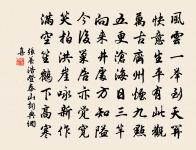 風雲一舉到天關
快意生平有此觀
萬古齊州烟九點
五更滄海日三竿
向來井處方知隘
今後巢居亦覺寬
笑拍洪崖咏新作
滿空笙鶴下高寒
張養浩登泰山詞典網
喜